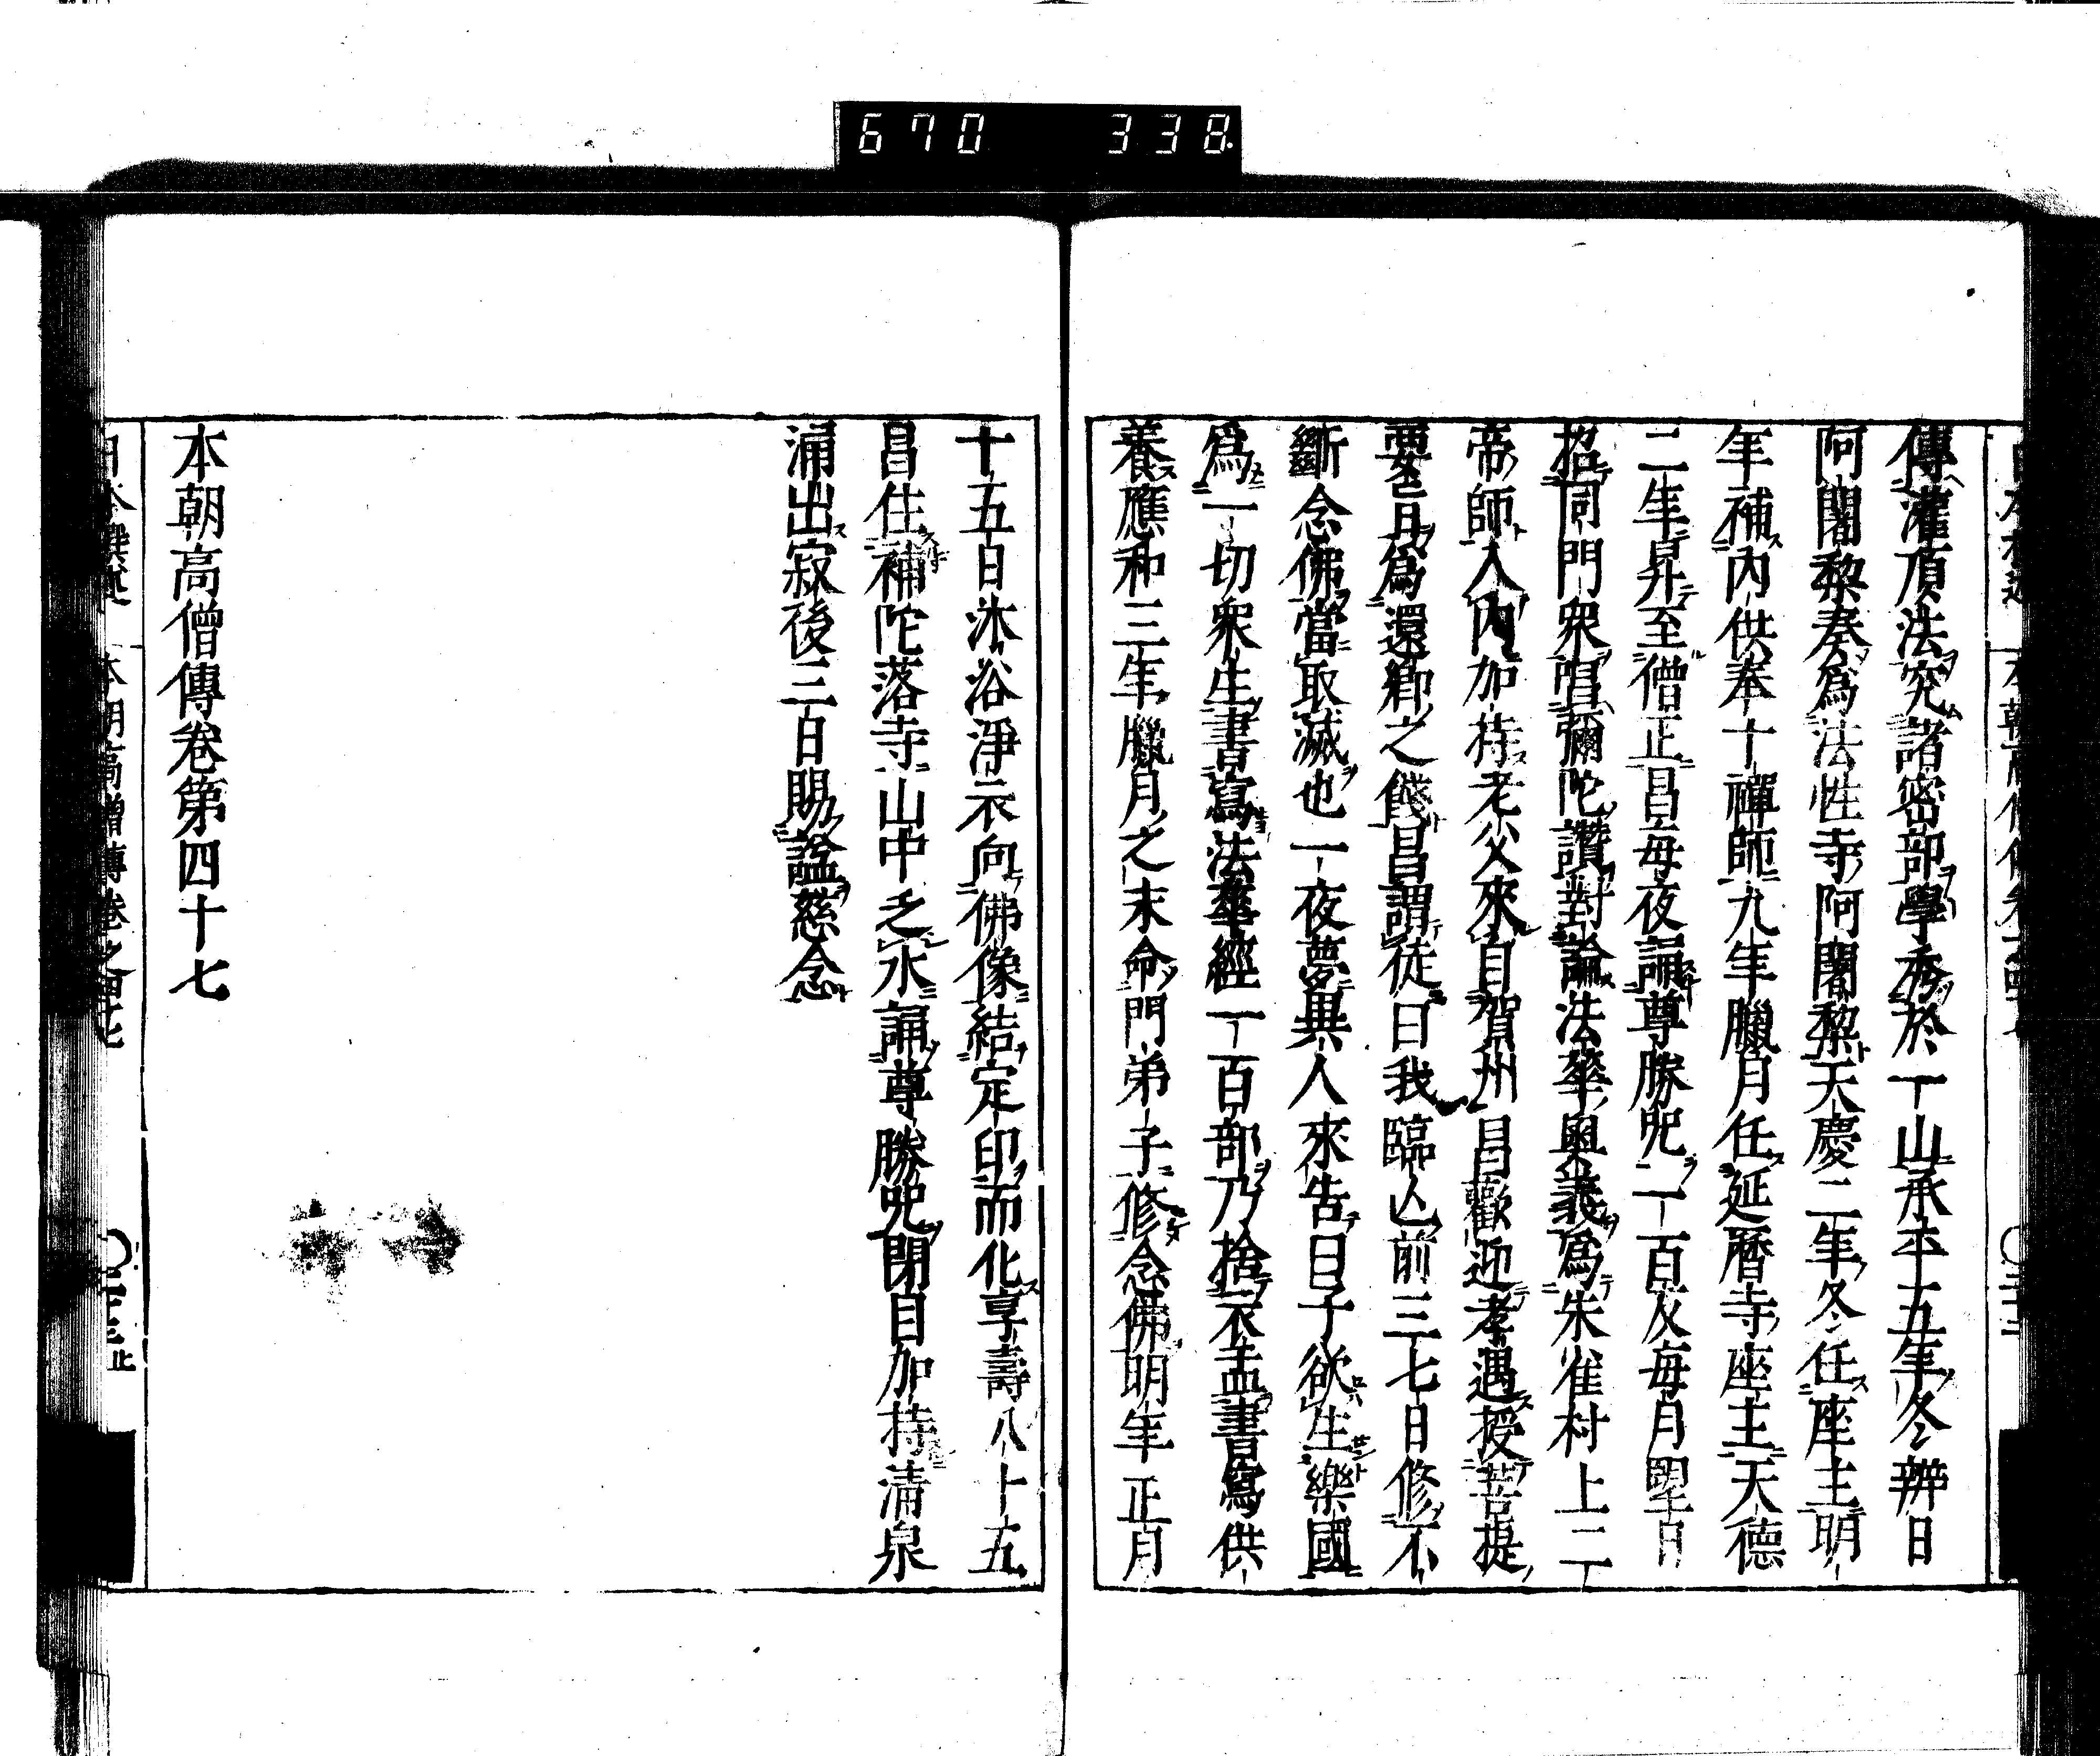 670 338
傳灌頂法究諸密部學秀於一山承平五年冬辨日
阿闍黎奏爲法性寺阿闍黎天慶二年冬任座主明
年補內供奉十禪師九年臘月任延曆寺座主天德
二年昇至僧正昌每夜誦尊勝呪一百反每月望日
招同門衆唱彌陀讚對論法華奧義爲朱雀村上二
帝師入內加持老父來自賀州昌歡迎孝遇授菩提
要旨爲還鄉之餞昌謂徒曰我臨亾前三七日修不
斷念佛當取滅也一夜夢異人來告曰子欲生樂國
爲一切衆生書寫法華經一百部乃捨衣盂書寫供
養應和三年臘月之末命門弟子修念佛明年正月
十五日沐浴淨衣向佛像結定印而化享壽八十五
昌住補陀落寺山中乏水誦尊勝呪閉目加持清泉
涌出寂後三百賜諡慈念
本朝高僧傳卷第四十七
日本撰述 本朝高僧傳卷之四十七 〇三十三止